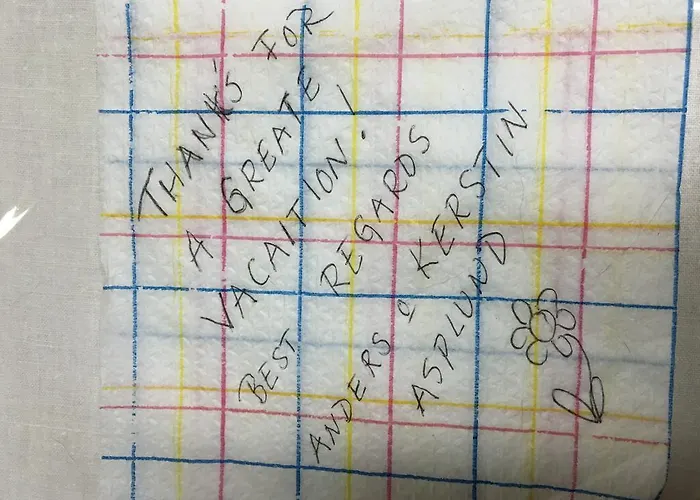 THANKS FOR
A GREATE
VACAITION!
BEST REGARDS
ANDERS o KERSTIN
ASPLUND